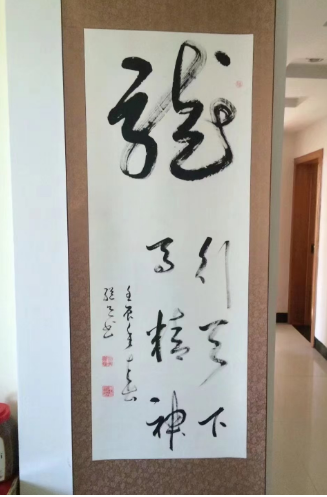 龍
行天下
馬精神
壬辰年